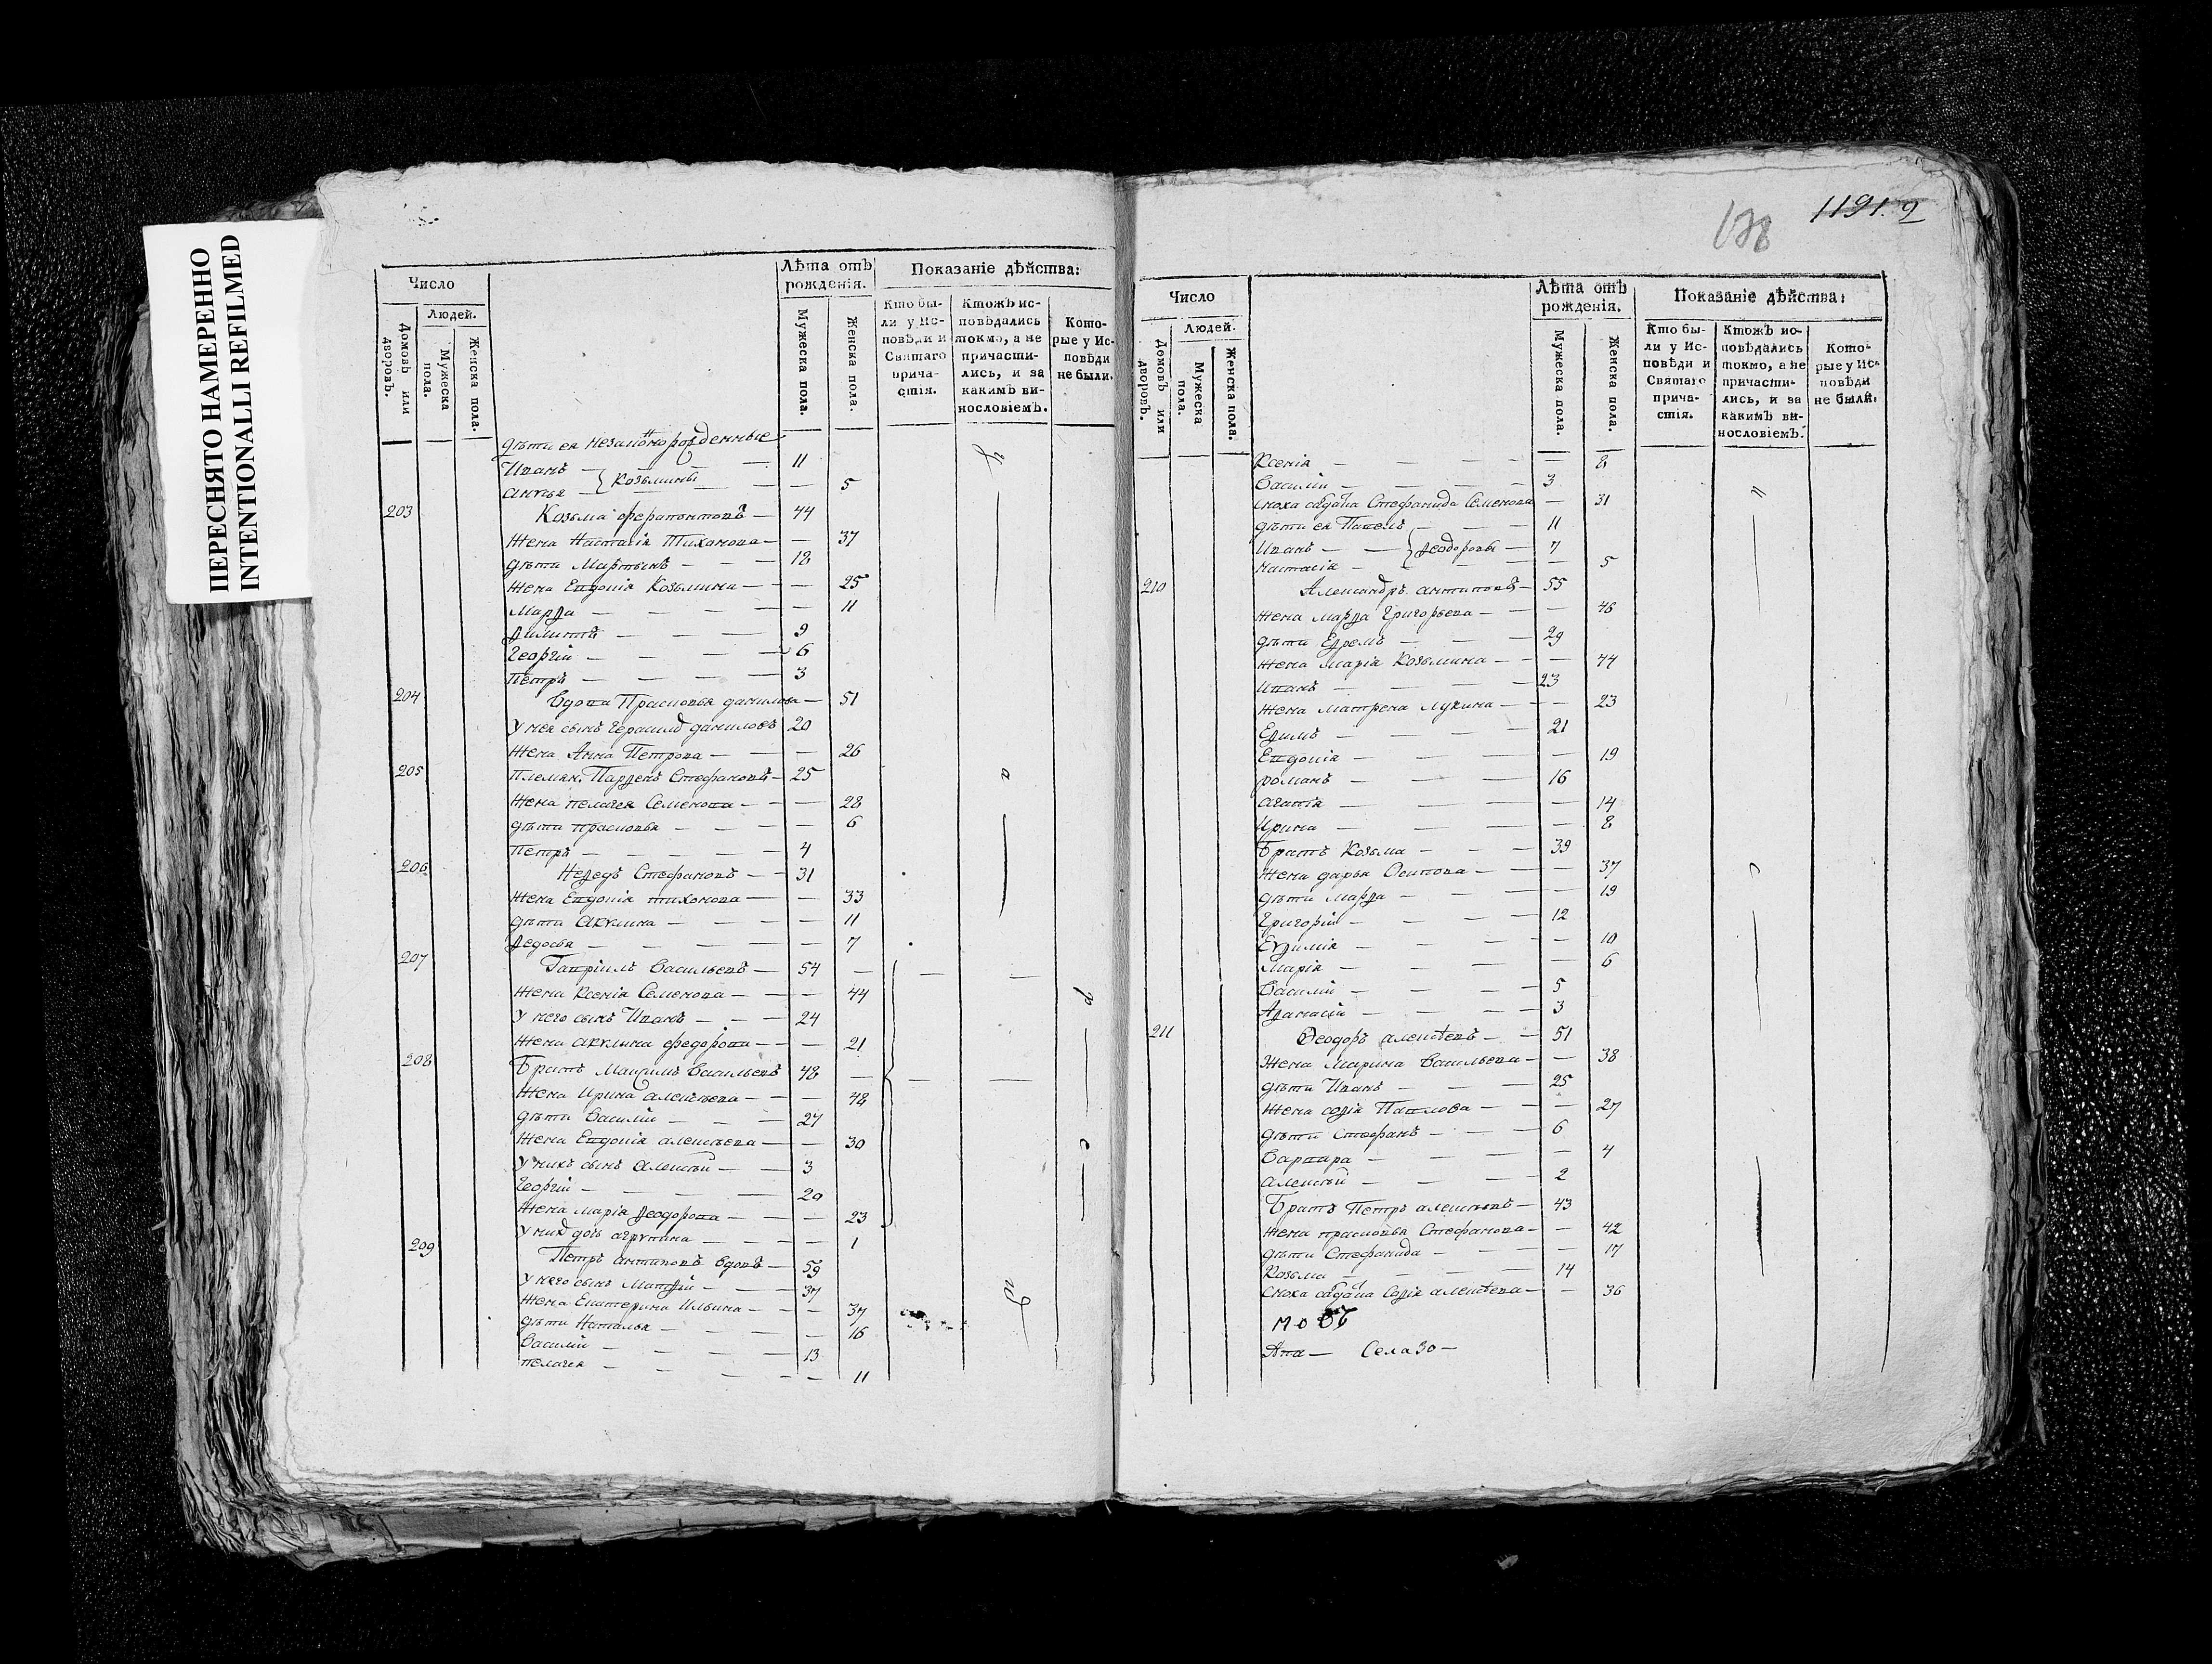 ПЕРЕСНЯТО НАМЕРЕННО
INTENTIONALLI REFILMED
Число
Людей.
Домовъ или дворовъ.
Мужеска пола.
Женска пола.
Лѣта отъ рожденія.
Мужеска пола.
Женска пола.
Показаніе дѣйства:
Кто бы-
ли у Ис-
повѣди и
Святаго
прича-
стія.
Ктожъ ис-
повѣдались
токмо, а не
причасти-
лись, и за
какимъ ви-
нословіемъ.
Кото-
рые у Ис-
повѣди
не были.
дѣти ея незаконорожденные
Иванъ — 11
Козьмины
— 5
203 Козьма Ферапонтовъ — 44
жена Настасія Тихонова — 37
дѣти Мартынъ — 18
жена Евдокія Козьмина — 25
Марѳа — 11
— 9
Георгій — 6
Петръ — 3
204 Вдова Прасковья данилова — 51
У нея сынъ Герасимъ даниловъ 20
жена Анна Петрова — 26
205 Племян. Парѳенъ Стефановъ — 25
жена пелагея Семенова — 28
дѣти прасковья — 6
Петръ — 4
206 Неѳедъ Стефановъ — 31
жена Евдокія тихонова — 33
дѣти Акулина — 11
Ѳедосья — 7
207 Гавріилъ Васильевъ — 54
жена Ксенія Семенова — 44
У него сынъ Иванъ — 24
жена акулина федорова — 21
208 Братъ Максимъ Васильевъ 48
жена Ирина алексѣева — 48
дѣти Василій — 27
жена Евдокія алексѣева — 30
У нихъ сынъ Алексѣй — 3
Георгій — 20
жена Марія Ѳеодорова — 23
У них дочь агрипина — 1
209 Петръ антиповъ вдовъ — 59
У него сынъ Матѳій — 37
жена Екатерина Ильина — 37
дѣти Наталья — 16
Василій — 13
пелагея — 11
1191. 2
Число
Людей.
Домовъ или дворовъ.
Мужеска пола.
Женска пола.
Лѣта отъ рожденія.
Мужеска пола.
Женска пола.
Показаніе дѣйства:
Кто бы-
ли у Ис-
повѣди и
Святаго
прича-
стія.
Ктожъ ис-
повѣдались
токмо, а не
причасти-
лись, и за
какимъ ви-
нословіемъ.
Кото-
рые у Ис-
повѣди
не были.
Ксенія — 8
Василій — 3
сноха Стефанида Семенова — 31
дѣти ея Павелъ — 11
Иванъ — Ѳеодоровы — 7
настасія — 5
210 Александръ антиповъ — 55
жена марѳа Григорьева — 46
дѣти Ефремъ — 29
жена Марія Козьмина — 44
Иванъ — 23
жена Матрена Лукина — 23
Ефимъ — 21
Евдокія — 19
романъ — 16
агапія — 14
Ирина — 8
Братъ Козьма — 39
жена дарья Осипова — 37
дѣти Марѳа — 19
Григорій — 12
Ефимія — 10
Марія — 6
Василій — 5
Аѳанасій — 3
211 Ѳеодоръ алексѣевъ — 51
Жена Марина Васильева — 38
дѣти Иванъ — 25
жена софія Павлова — 27
дѣти Стефанъ — 6
Варвара — 4
алексѣй — 2
Братъ Петръ алексѣевъ — 43
жена прасковья Стефанова — 42
дѣти Стефанида — 17
Козьма — 14
Сноха Софія алексѣева — 36
Села Зо —